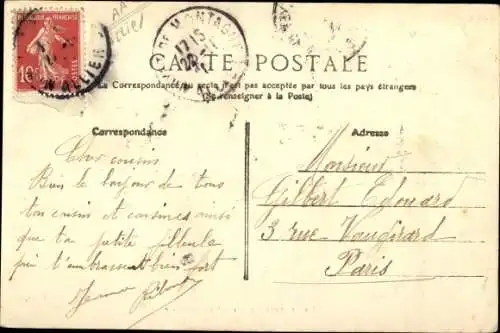 RÉPUBLIQUE FRANÇAISE
10
ALLIER
DE MONTAGNE
17 15
CARTE POSTALE
La Correspondance au recto n'est pas acceptée par tous les pays étrangers
(Se renseigner à la Poste)
Correspondance
Adresse
Cher cousin
Bien le bonjour de tous
ton cousin et cousines ainsi
que ta petite filleule
qui t'embrassent bien fort
Monsieur
Gilbert Edouard
3 rue Vaugirard
Paris